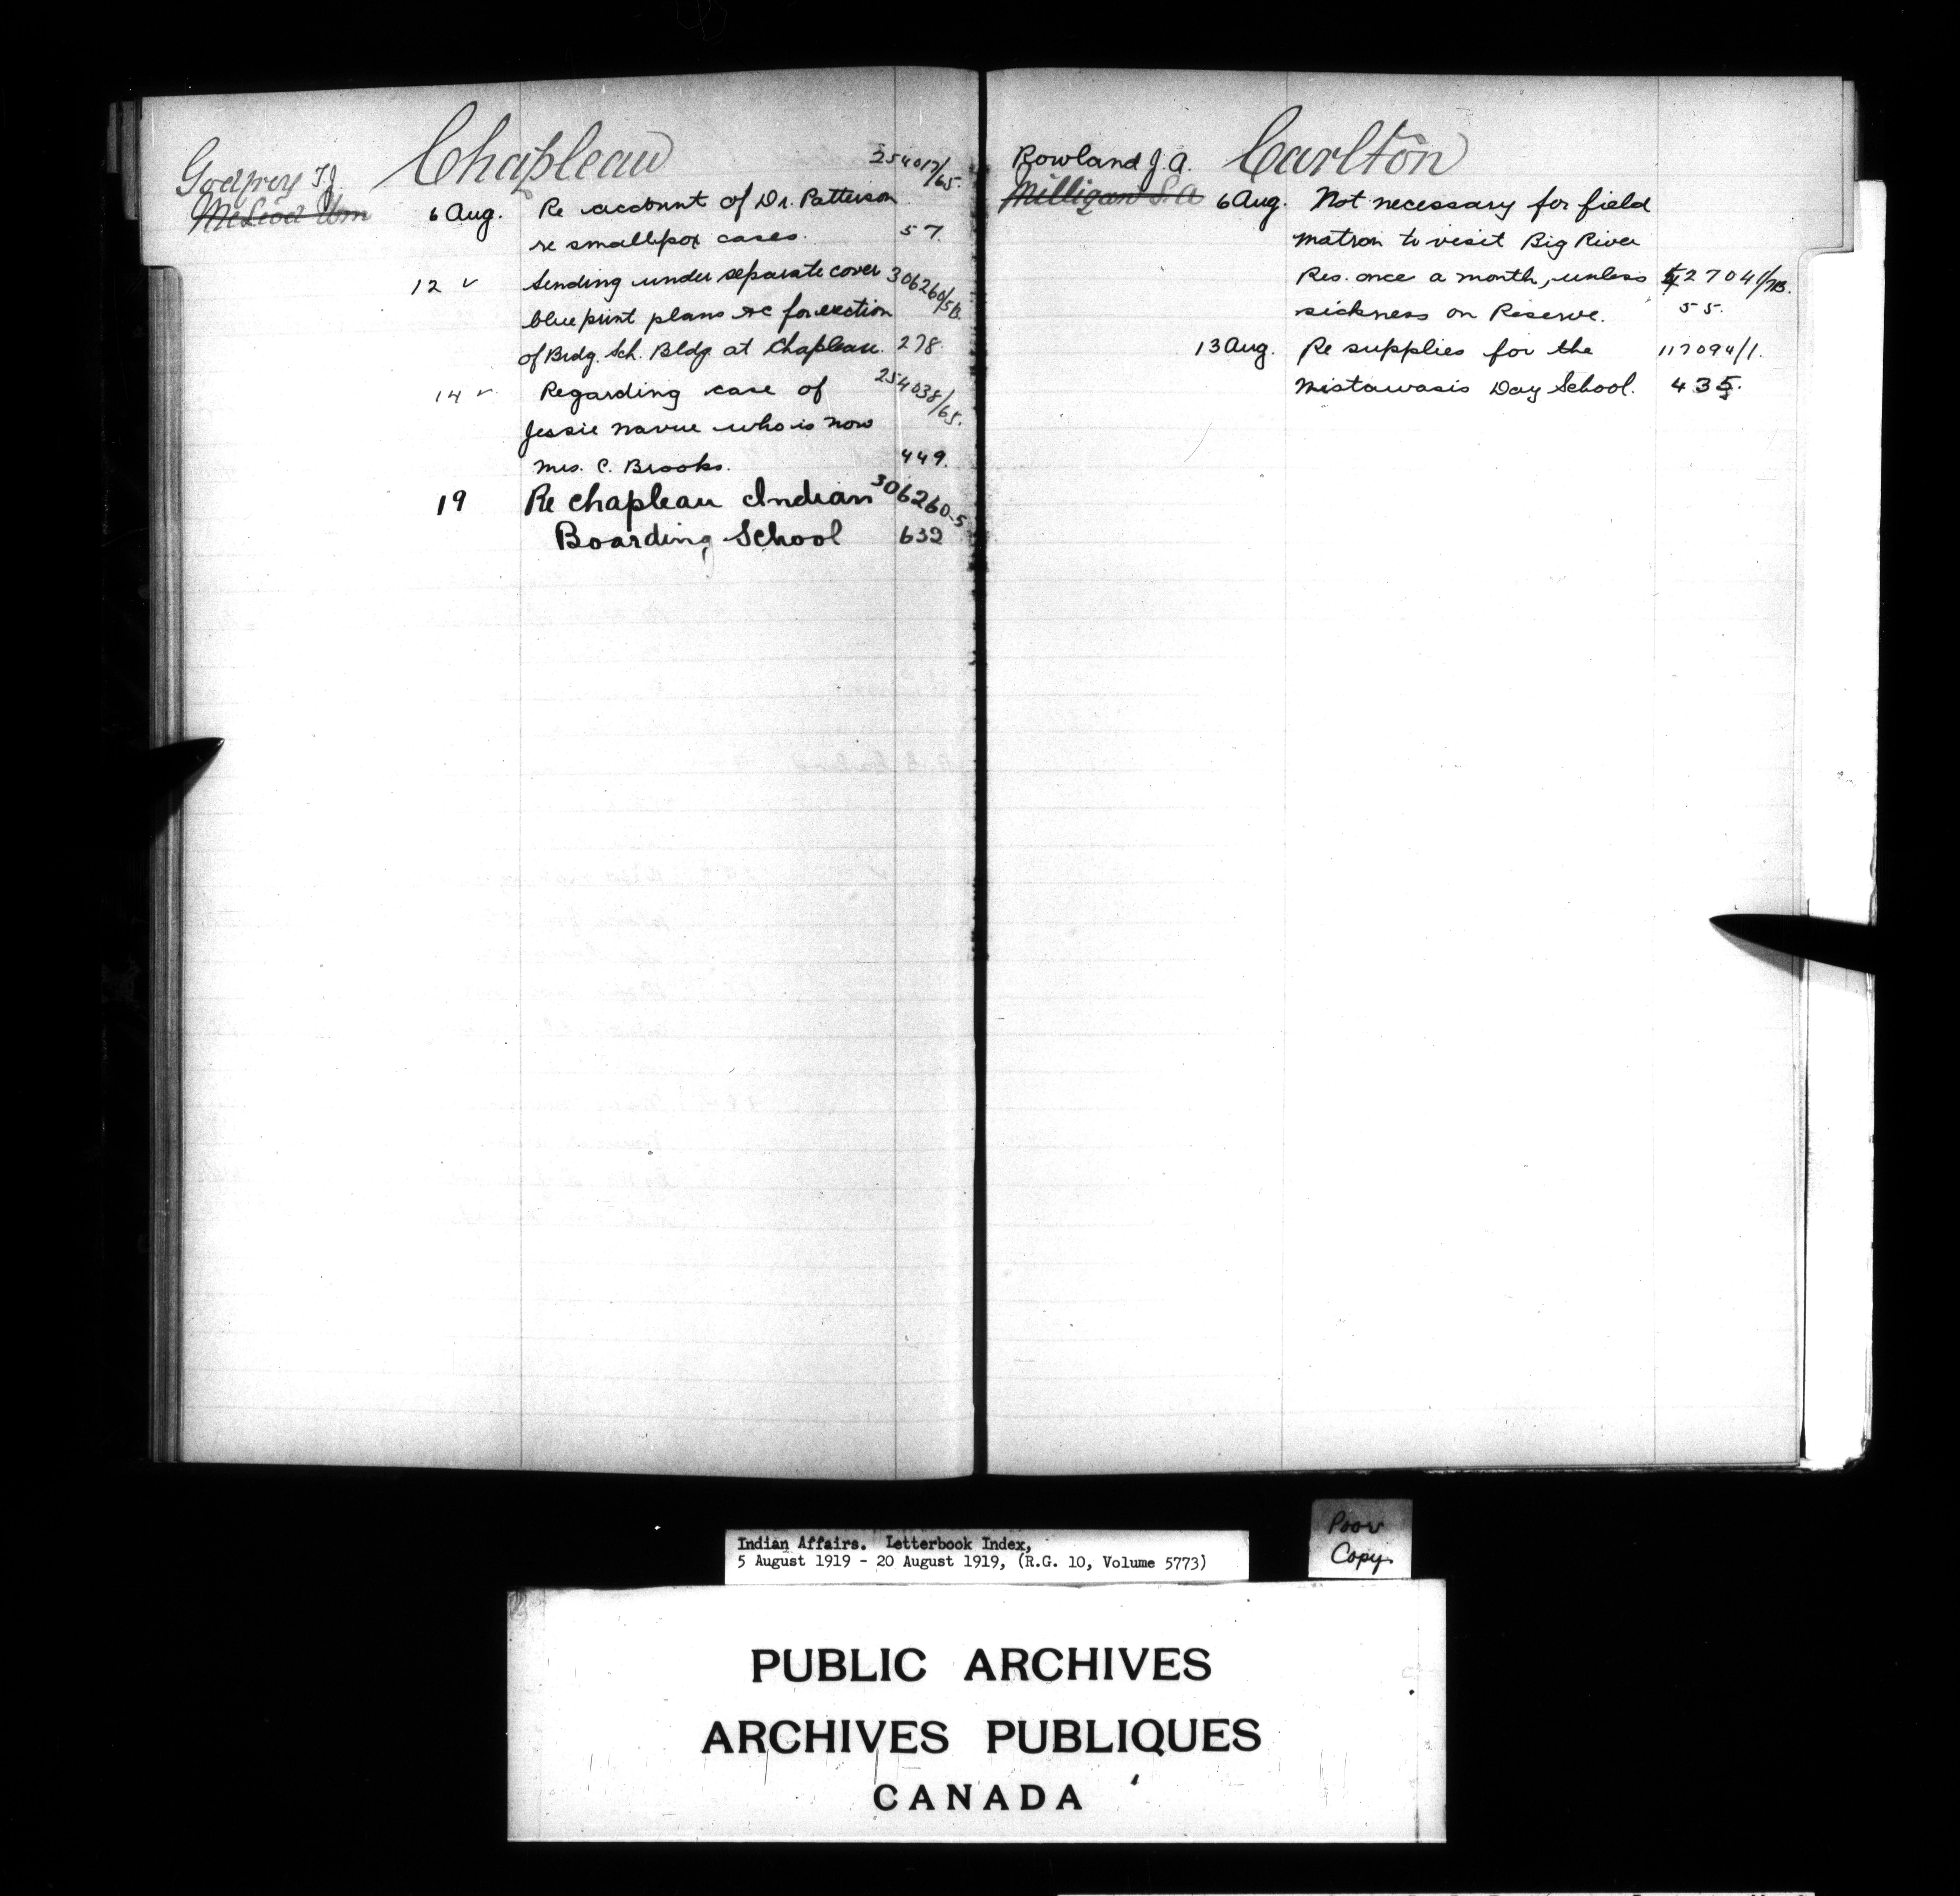 Chapleau
Godfrey T.J.
McLeod Wm
254017/65.
6 Aug. Re account of Dr. Patterson
re smallpox cases. 57.
12 " Sending under separate cover 306260/5B.
blueprint plans &c for erection
of Brdg. Sch. Bldg. at Chapleau. 278.
14 " Regarding case of 254038/65.
Jessie Navue who is now
Mrs. C. Brooks. 449.
19 Re Chapleau Indian 306260-5
Boarding School 632
Carlton
Rowland J.A.
Milligan S.A
6 Aug. Not necessary for field
matron to visit Big River
Res. once a month, unless
sickness on Reserve. 55.
13 Aug. Re supplies for the 117094/1.
Mistawasis Day School. 435.
Indian Affairs. Letterbook Index,
5 August 1919 - 20 August 1919, (R.G. 10, Volume 5773)
Poor
Copy
PUBLIC ARCHIVES
ARCHIVES PUBLIQUES
CANADA